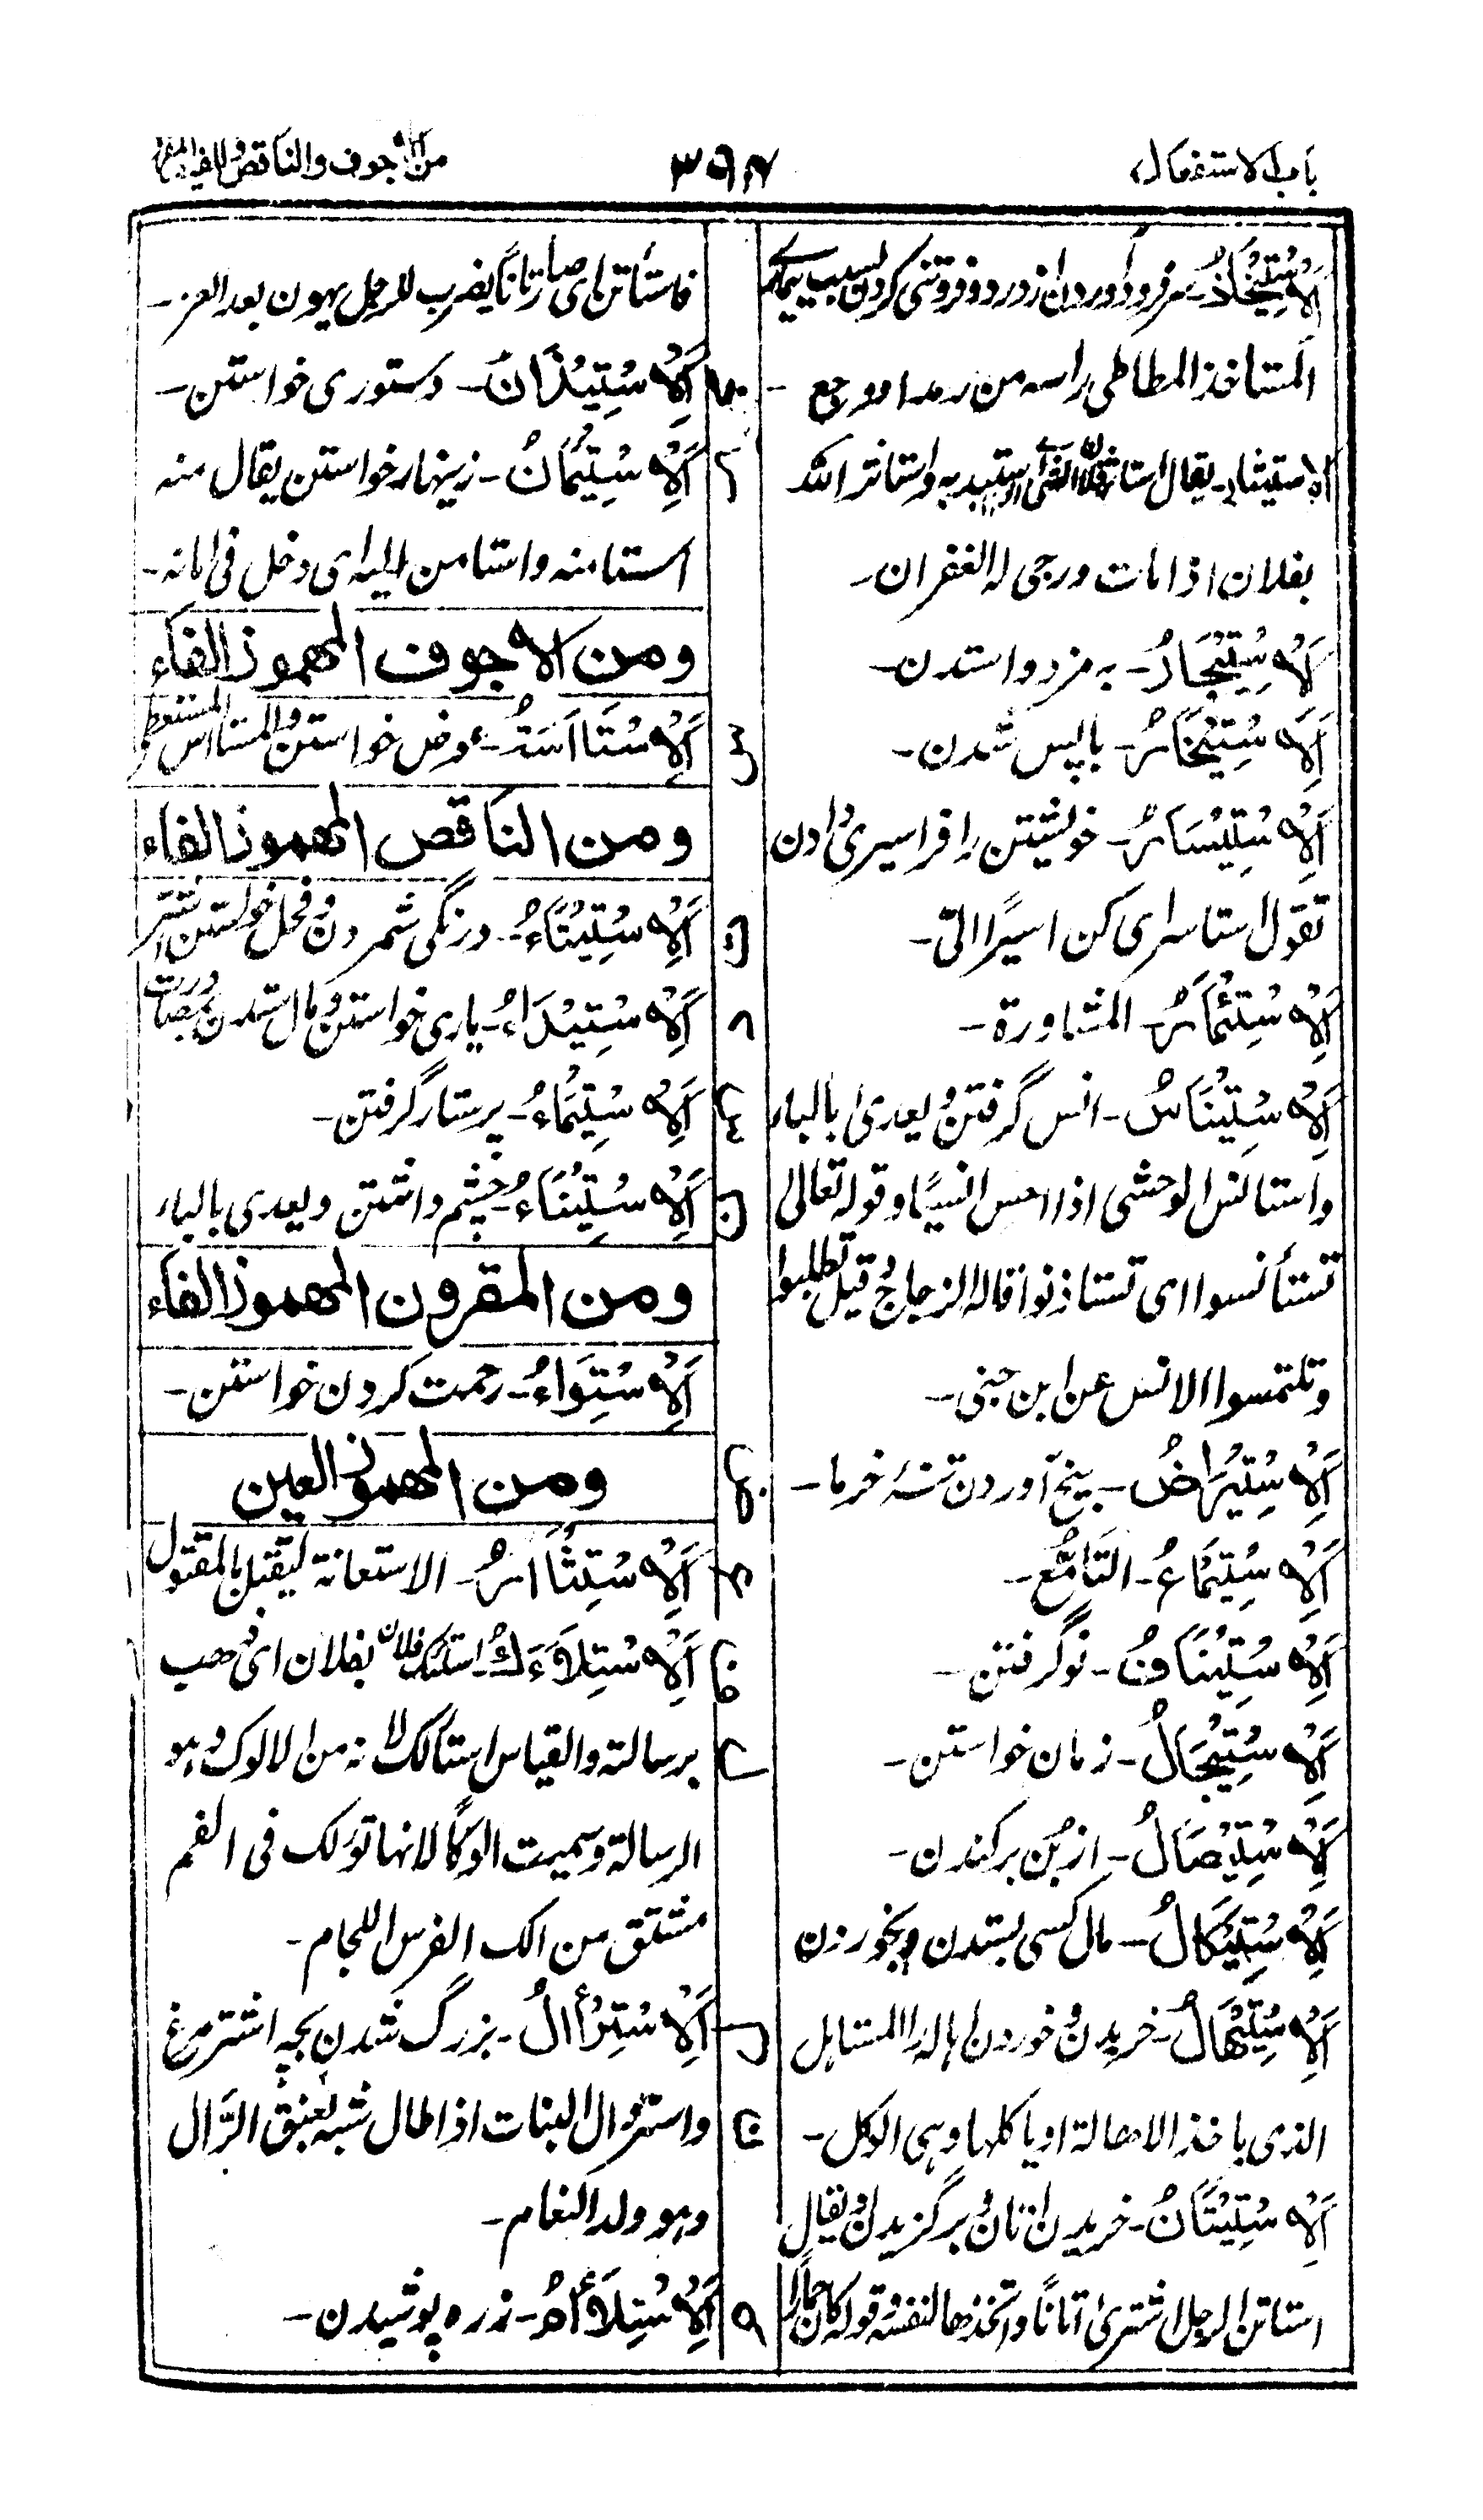 باب الاستفعال
٣٩٧
من الاجوف والناقص
اَلْاِسْتِيْخَاذُ۔ سر فرود آوردن از درد و فروتنی کردن بسبب بیماری
المستاخذ المطاطی راسه من رمد او وجع۔
الاستیثار۔ یقال استاثر فلان بالشئ ای استبد به واستاثر الله
بفلان اذا مات ورجی له الغفران۔
اَلْاِسْتِيْجَارُ۔ به مزد واستدن۔
اَلْاِسْتِيْخَارُ۔ باپس شدن۔
اَلْاِسْتِيْسَارُ۔ خویشتن را فرا اسیری دادن
تقول استاسر ای کن اسیرًا لی۔
اَلْاِسْتِئْمَارُ۔ المشاورة۔
اَلْاِسْتِيْنَاسُ۔ انس گرفتن و یعدی بالباء
واستانس الوحشی اذا احس انسیًا و قوله تعالی
تستأنسوا ای تستاذنوا قاله الزجاج و قیل تطلبوا
وتلتمسوا الانس عن ابن جنی۔
اَلْاِسْتِيْرَاضُ۔ بیخ آوردن تنهٔ خرما۔
اَلْاِسْتِيْمَاعُ۔ التَّاَمُّع۔
اَلْاِسْتِيْنَافُ۔ نو گرفتن۔
اَلْاِسْتِيْجَالُ۔ زمان خواستن۔
اَلْاِسْتِيْصَالُ۔ از بُن برکندن۔
اَلْاِسْتِيْكَالُ۔ مال کسی بستدن و بخوردن
اَلْاِسْتِيْهَالُ۔ خریدن و خوردن اهاله را المستاهل
الذی یاخذ الاهالة او یاکلها وهی الوکل۔
اَلْاِسْتِيْتَانُ۔ خریدن اتان و برگزیدن و یقال
استاتن الرجل اشتری اتانًا واتخذها لنفسه و قوله کان حمارا
فاستاتن ای صار اتانًا یضرب للرجل یهون بعد العز۔
اَلْاِسْتِيْذَانُ۔ دستوری خواستن۔
اَلْاِسْتِيْمَانُ۔ زینهار خواستن یقال منه
استامنه واستامن الیه ای دخل فی امانه۔
ومن الاجوف المهموز الفاء
اَلْاِسْتَاسَةُ۔ عوض خواستن و المستاس المستعطی
ومن الناقص المهموز الفاء
اَلْاِسْتِيْتَاءُ۔ درنگی شمردن و فحل خواستن اشتر
اَلْاِسْتِيْدَاءُ۔ یاری خواستن و مال ستدن بمصادرت
اَلْاِسْتِيْمَاءُ۔ پرستار گرفتن۔
اَلْاِسْتِيْنَاءُ۔ چشم داشتن و یعدی بالباء
ومن المقرون المهموز الفاء
اَلْاِسْتِوَاءُ۔ رحمت کردن خواستن۔
ومن المهموز العین
اَلْاِسْتِثْاٰرُ۔ الاستعانة لیقتل بالمقتول
اَلْاِسْتِلْاَءَكُ۔ استلاک فلان بفلان ای ذهب
برسالته والقیاس استالک لانه من الالوک وهو
الرسالة وسمیت الوکًا لانها تؤلک فی الفم
مشتق من الک الفرس اللجام۔
اَلْاِسْتِرْأَالُ۔ بزرگ شدن بچه اشتر مرغ
واسترأل النبات اذا طال شبه بعنق الرَّال
وهو ولد النعام۔
اَلْاِسْتِلْأَاٰمُ۔ زره پوشیدن۔